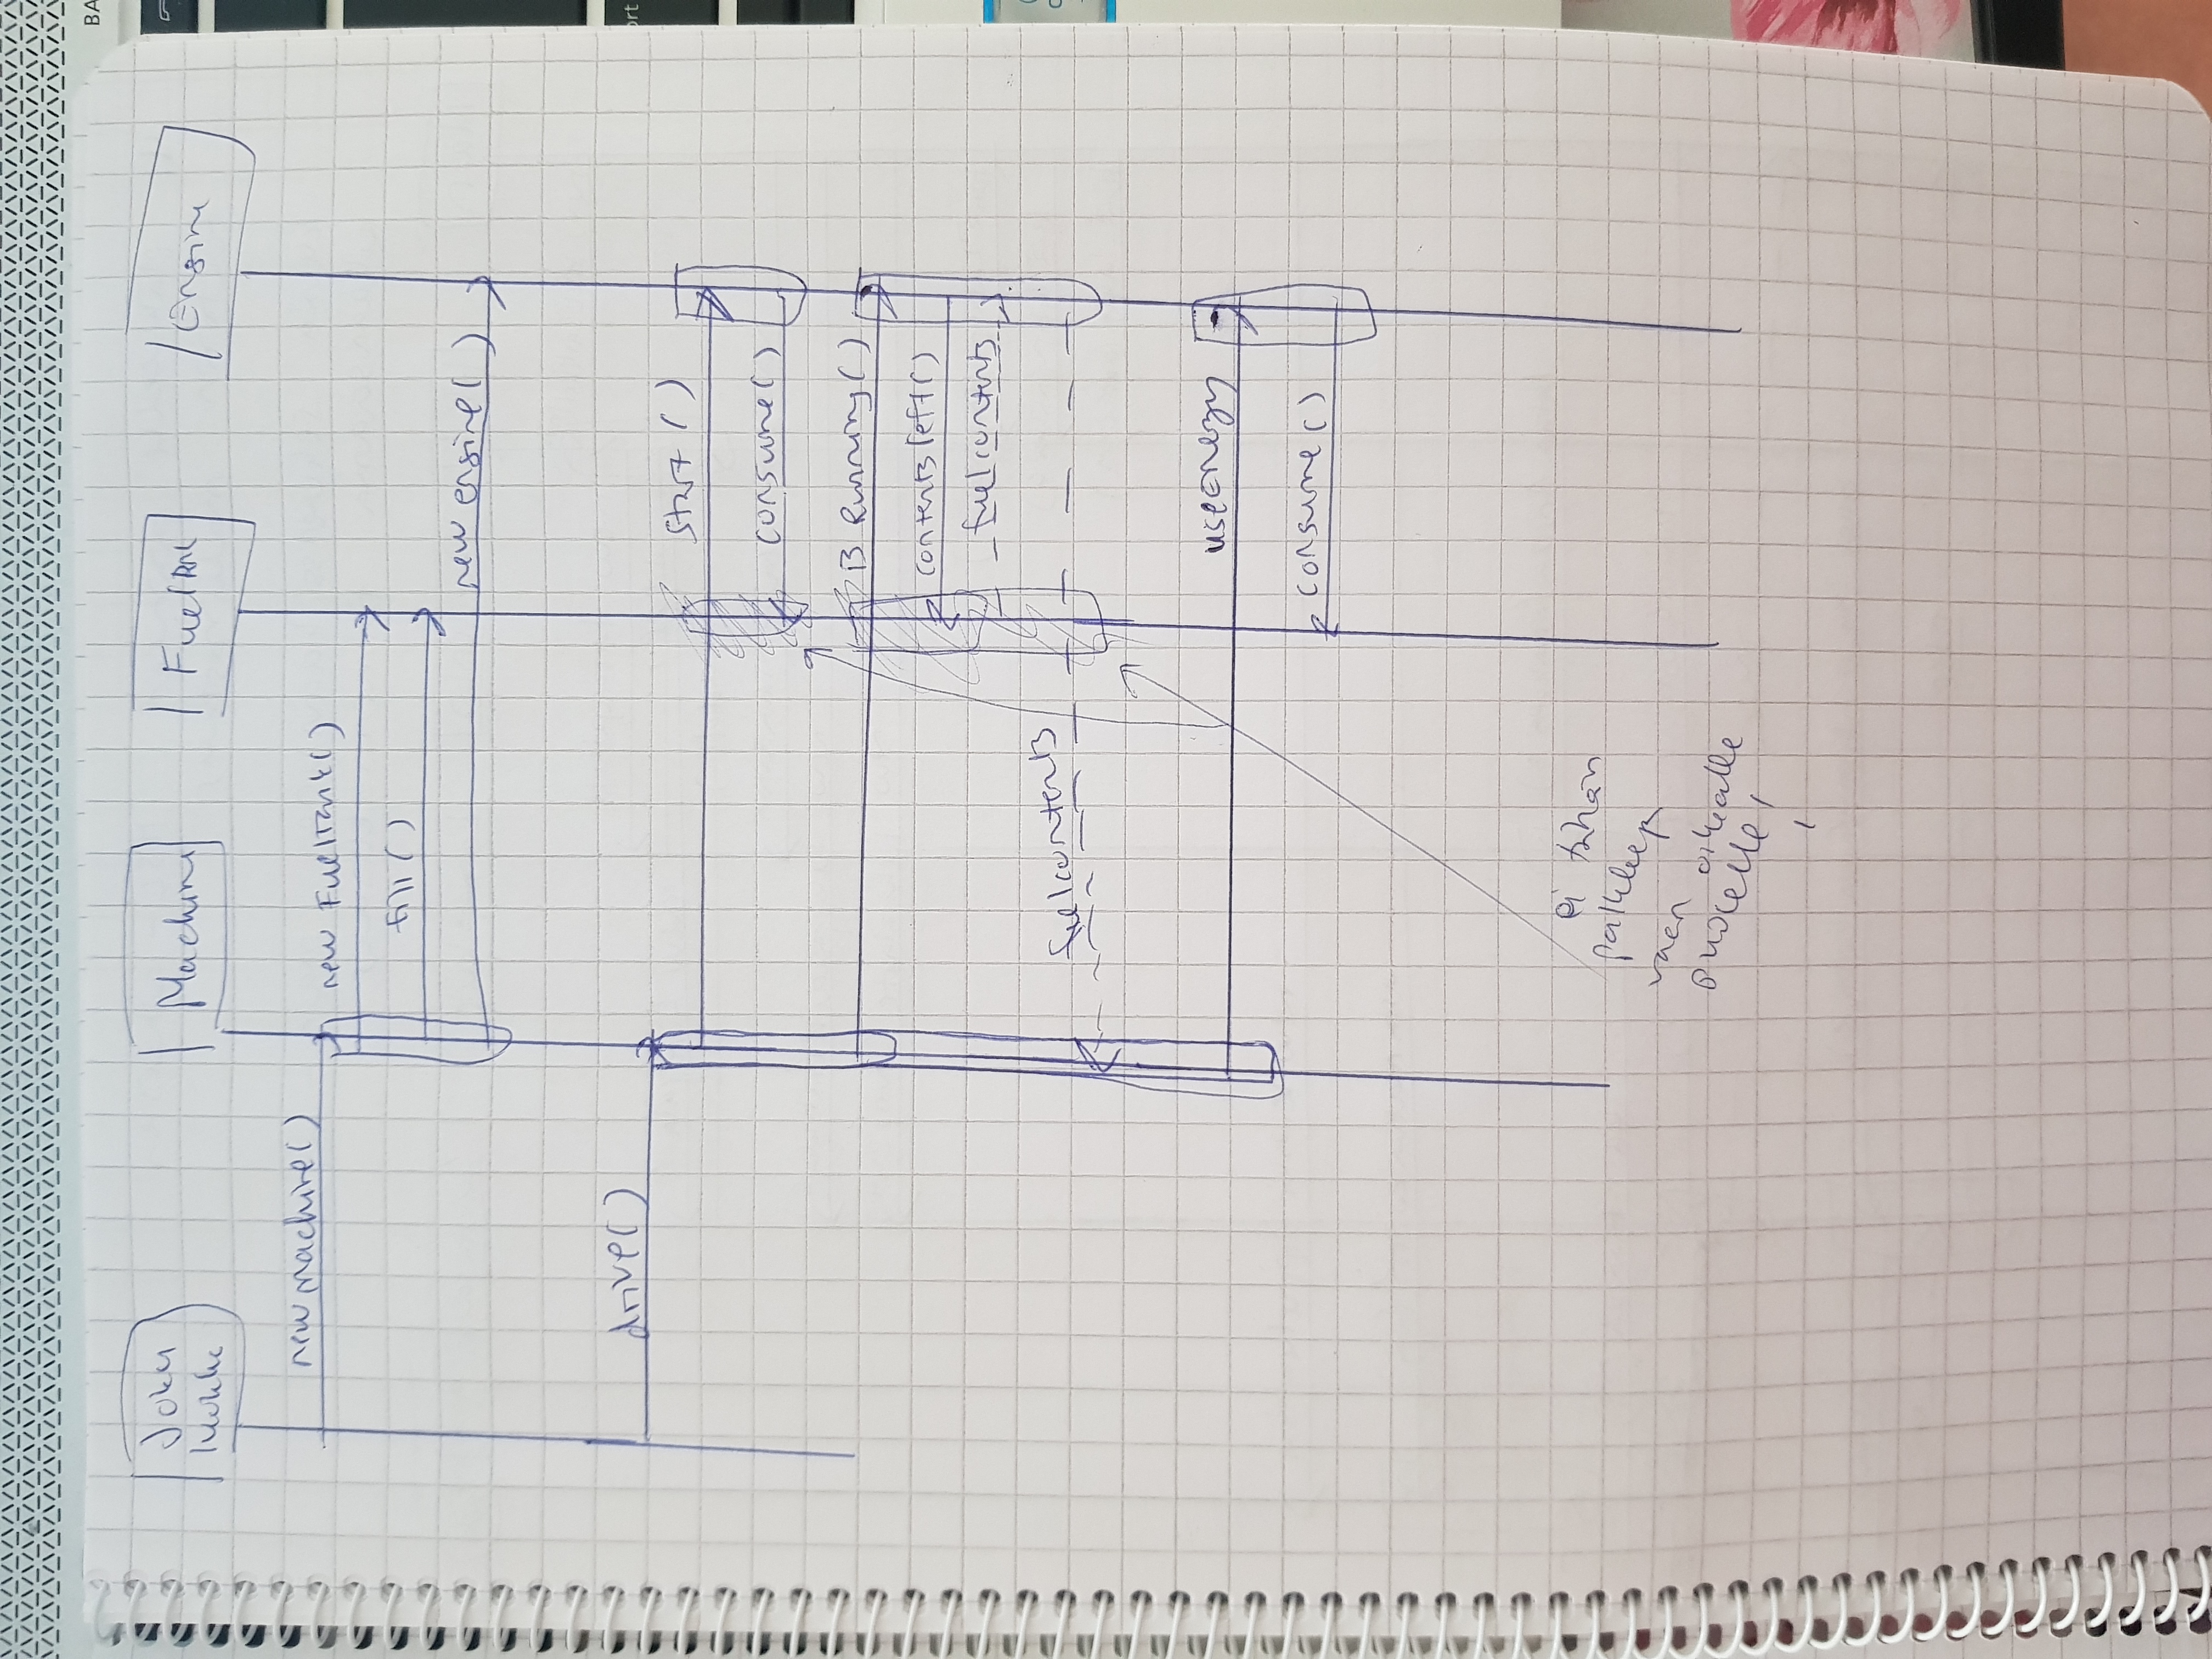 Joku
luokka
Machine
FuelTank
Engine
new machine()
new FuelTank()
fill()
new engine()
drive()
start()
consume()
is Running()
contents left()
fuelcontents
fuelcontents
useenergy
consume()
ei tähän
palkkeja
vaen oikealle
puolelle!
BA
ort